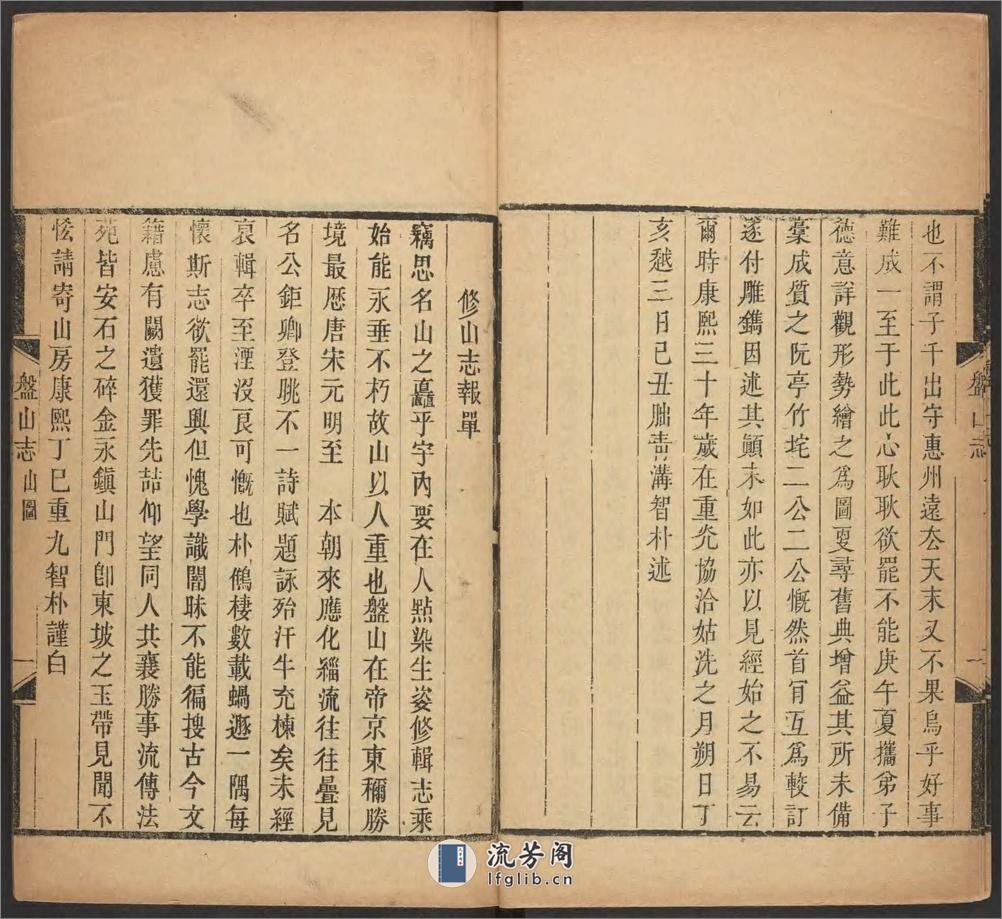 也不謂子千出守惠州遠厺天末又不果烏乎好事
難成一至于此此心耿耿欲罷不能庚午夏攜弟子
德意詳觀形勢繪之爲圖更尋舊典增益其所未備
稾成質之阮亭竹垞二公二公慨然首肎互爲較訂
遂付雕鐫因述其顛末如此亦以見經始之不易云
爾時康熙三十年歲在重光協洽姑洗之月朔日丁
亥越三日己丑朏靑溝智朴述
盤山志
二
修山志報單
竊思名山之矗乎宇內要在人點染生姿修輯志乘
始能永垂不朽故山以人重也盤山在帝京東稱勝
境最歷唐宋元明至 本朝來應化緇流往往曡見
名公鉅卿登眺不一詩賦題詠殆汗牛充棟矣未經
裒輯卒至湮沒良可慨也朴鷦棲數載蝸遯一隅每
懷斯志欲罷還興但愧學識闇昧不能徧搜古今文
籍慮有闕遺獲罪先喆仰望同人共襄勝事流傳法
苑皆安石之碎金永鎭山門卽東坡之玉帶見聞不
恡請寄山房康熙丁巳重九智朴謹白
盤山志 山圖
一
流芳阁
lfglib.cn